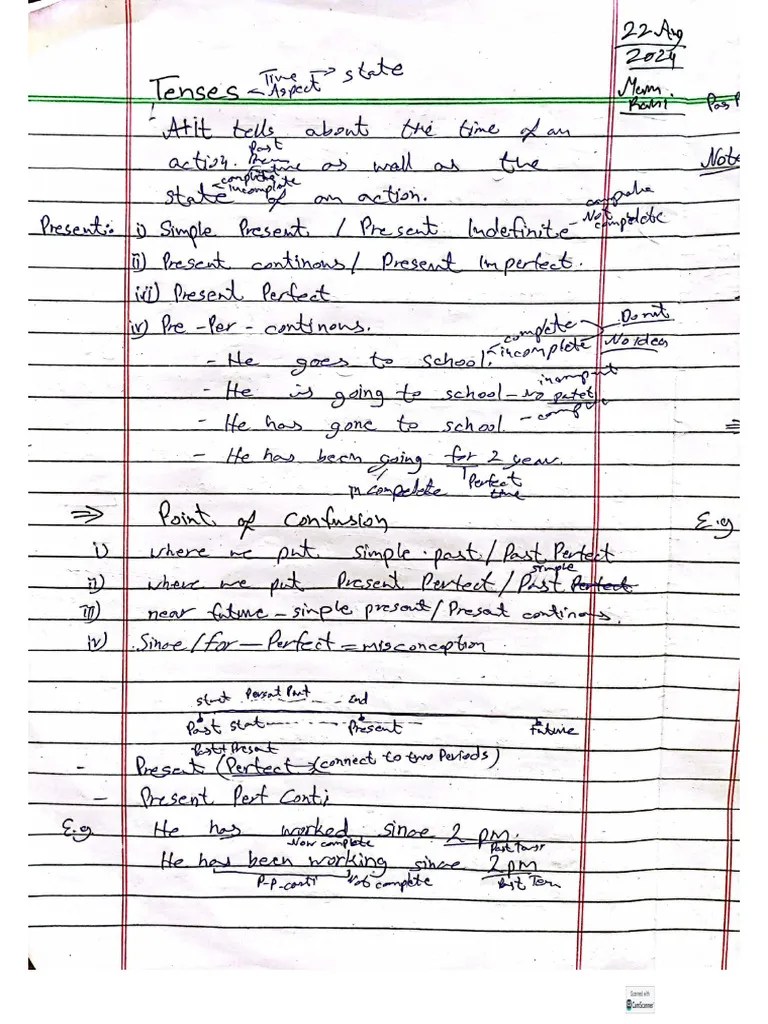 22 Aug
2024
Tenses
Time
Aspect
→ state
Mam
Pas P
Atit tells about the time of an
Past
action.
time as wall as the
Note
complete
incomplete
state of an action.
Present:- i) Simple Present / Present Indefinite
Not complete
ii) Present continous / Present Imperfect.
iii) Present Perfect
iv) Pre - Per - continous.
complete
incomplete
Donut
No Idea
- He goes to school.
- He is going to school -
- He has gone to school. -
- He has been going for 2 year.
In compelete
Perfect
time
⇒ Point of confusion
E.g
i) where we put simple past / Past Perfect
simple
ii) where we put Present Perfect / Past Perfect
iii) near future - simple present / Present continous.
iv) Since / for - Perfect = misconception
start
End
Past stat
Present
Future
Past + Present
- Present (Perfect → (connect to two Periods)
- Present Perf Conti;
E.g He has worked since 2 pm.
Now complete
Past Tense
He has been working since 2pm
P-p-conti
Not complete
Past Ten
Scanned with
CamScanner